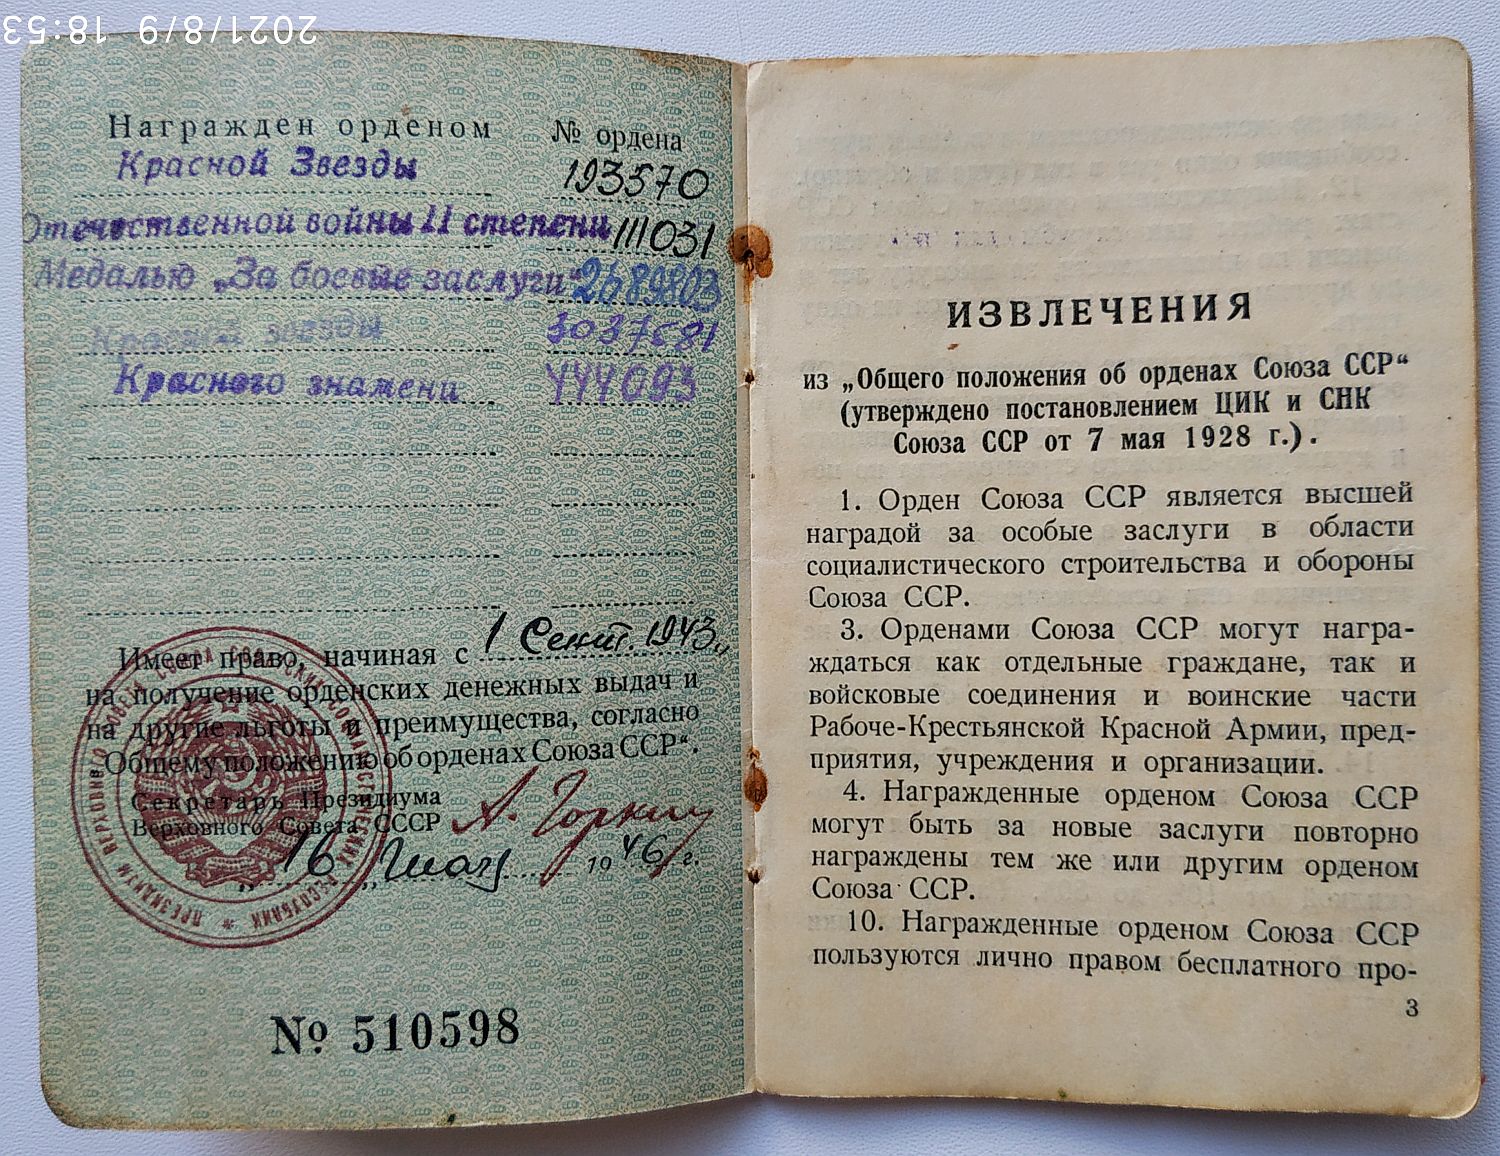 2021/8/9 18:53
Награжден орденом № ордена
Красной Звезды 193570
Отечественной войны II степени 111031
Медалью „За боевые заслуги“ 2689803
Красной звезды 3037581
Красного знамени 444093
Имеет право, начиная с 1 Сент. 1943
на получение орденских денежных выдач и
на другие льготы и преимущества, согласно
„Общему положению об орденах Союза ССР“.
Секретарь Президиума
Верховного Совета СССР А. Горкин
„16“ 1946 г.
ПРЕЗИДИУМ ВЕРХОВНОГО СОВЕТА СОЮЗА СОВЕТСКИХ СОЦИАЛИСТИЧЕСКИХ РЕСПУБЛИК
№ 510598
ИЗВЛЕЧЕНИЯ
из „Общего положения об орденах Союза ССР“
(утверждено постановлением ЦИК и СНК
Союза ССР от 7 мая 1928 г.).
1. Орден Союза ССР является высшей
наградой за особые заслуги в области
социалистического строительства и обороны
Союза ССР.
3. Орденами Союза ССР могут награ-
ждаться как отдельные граждане, так и
войсковые соединения и воинские части
Рабоче-Крестьянской Красной Армии, пред-
приятия, учреждения и организации.
4. Награжденные орденом Союза ССР
могут быть за новые заслуги повторно
награждены тем же или другим орденом
Союза ССР.
10. Награжденные орденом Союза ССР
пользуются лично правом бесплатного про-
3